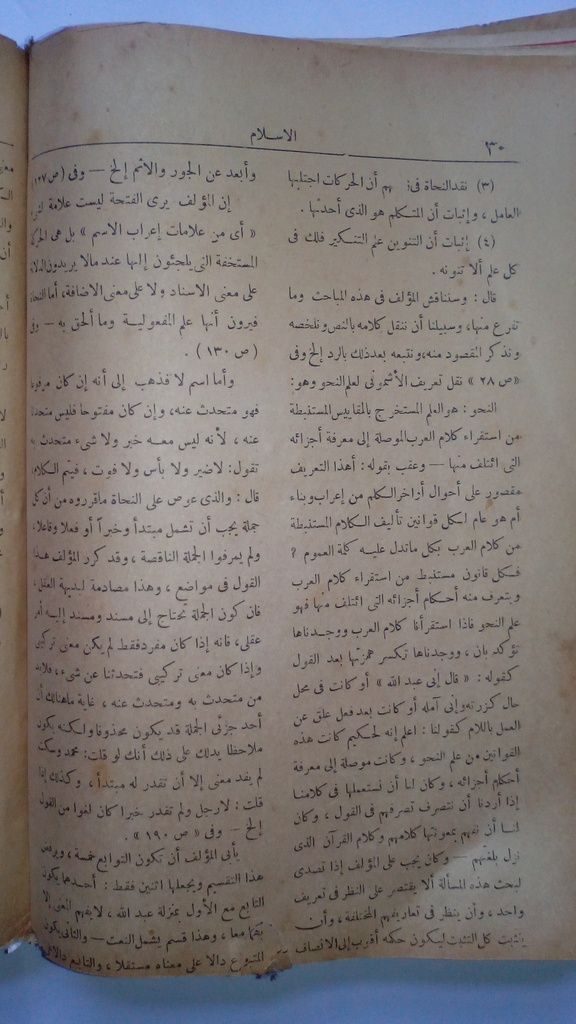 ٣٠
الاسلام
(٣) نقد النحاة فى: هم أن الحركات اجتلبها
العامل، وإثبات أن المتكلم هو الذى أحدثها.
(٤) إثبات أن التنوين علم التنكير فلك فى
كل علم ألا تنونه.
قال: وسنناقش المؤلف فى هذه المباحث وما
تفرع منها، وسبيلنا أن ننقل كلامه بالنص ونلخصه
ونذكر المقصود منه، ونتبعه بعد ذلك بالرد إلخ وفى
«ص ٢٨» نقل تعريف الأشمونى لعلم النحو وهو:
النحو: هو العلم المستخرج بالمقاييس المستنبطة
من استقراء كلام العرب الموصلة إلى معرفة أجزائه
التى ائتلف منها — وعقب بقوله: أهذا التعريف
مقصور على أحوال أواخر الكلم من إعراب وبناء
أم هو عام لكل قوانين تأليف الكلام المستنبطة
من كلام العرب بكل ماتدل عليه كلمة العموم ؟
فكل قانون مستنبط من استقراء كلام العرب
ويتعرف منه أحكام أجزائه التى ائتلف منها فهو
علم النحو فاذا استقرأنا كلام العرب ووجدناها
تؤكد بان، ووجدناها تكسر همزتها بعد القول
كقوله: « قال إنى عبد الله » أو كانت فى محل
حال كزرته وإنى آمله أو كانت بعد فعل علق عن
العمل باللام كقولنا: اعلم إنه لحكيم كانت هذه
القوانين من علم النحو، وكانت موصلة إلى معرفة
أحكام أجزائه، وكان لنا أن نستعملها فى كلامنا
إذا أردنا أن نتصرف تصرفهم فى القول، وكان
لنا أن نفهم بمعونتها كلامهم وكلام القرآن الذى
نزل بلغتهم — وكان يجب على المؤلف إذا تصدى
لبحث هذه المسألة ألا يقتصر على النظر فى تعريف
واحد، وأن ينظر فى تعاريفهم المختلفة، وأن
يتثبت كل التثبت ليكون حكمه أقرب إلى الانصاف
وأبعد عن الجور والاثم إلخ — وفى (ص ١٢٧)
إن المؤلف يرى الفتحة ليست علامة
« أى من علامات إعراب الاسم » بل هى الحركة
المستخفة التى يلجئون إليها عند مالا يريدون الدلالة
على معنى الاسناد ولا على معنى الاضافة، أما النحاة
فيرون أنها علم المفعولية وما ألحق به — وفى
( ص ١٣٠ ) .
وأما اسم لا فذهب إلى أنه إن كان مرفوعا
فهو متحدث عنه، وإن كان مفتوحا فليس متحدثا
عنه، لأنه ليس معه خبر ولا شىء متحدث به
تقول: لاضير ولا بأس ولا فوت، فيتم الكلام
قال: والذى عوص على النحاة ماقرروه من أن كل
جملة يجب أن تشمل مبتدأ وخبراً أو فعلا وفاعلا،
ولم يعرفوا الجملة الناقصة، وقد كرر المؤلف هذا
القول فى مواضع، وهذا مصادمة لبديهة العقل،
فان كون الجملة تحتاج إلى مسند ومسند إليه أمر
عقلى، فانه إذا كان مفرد فقط لم يكن معنى تركيبى
وإذا كان معنى تركيبى فتحدثنا عن شىء، فلابد
من متحدث به ومتحدث عنه، غاية ماهنالك أن
أحد جزئى الجملة قد يكون محذوفا ولكنه يكون
ملاحظا يدلك على ذلك أنك لو قلت: محمد وسكت
لم يفد معنى إلا أن تقدر له مبتدأ، وكذلك إذا
قلت: لارجل ولم تقدر خبرا كان لغوا من القول
إلخ — وفى « ص ١٩٠ » .
يأبى المؤلف أن تكون التوابع خمسة، ويرفض
هذا التقسيم ويجعلها اثنين فقط: أحدهما يكون
التابع مع الأول بمنزلة عبد الله، لايفهم المعنى إلا
بهما معا، وهذا قسم يشمل النعت — والثانى يكون
المتبوع دالا على معناه مستقلا، والتابع دالا